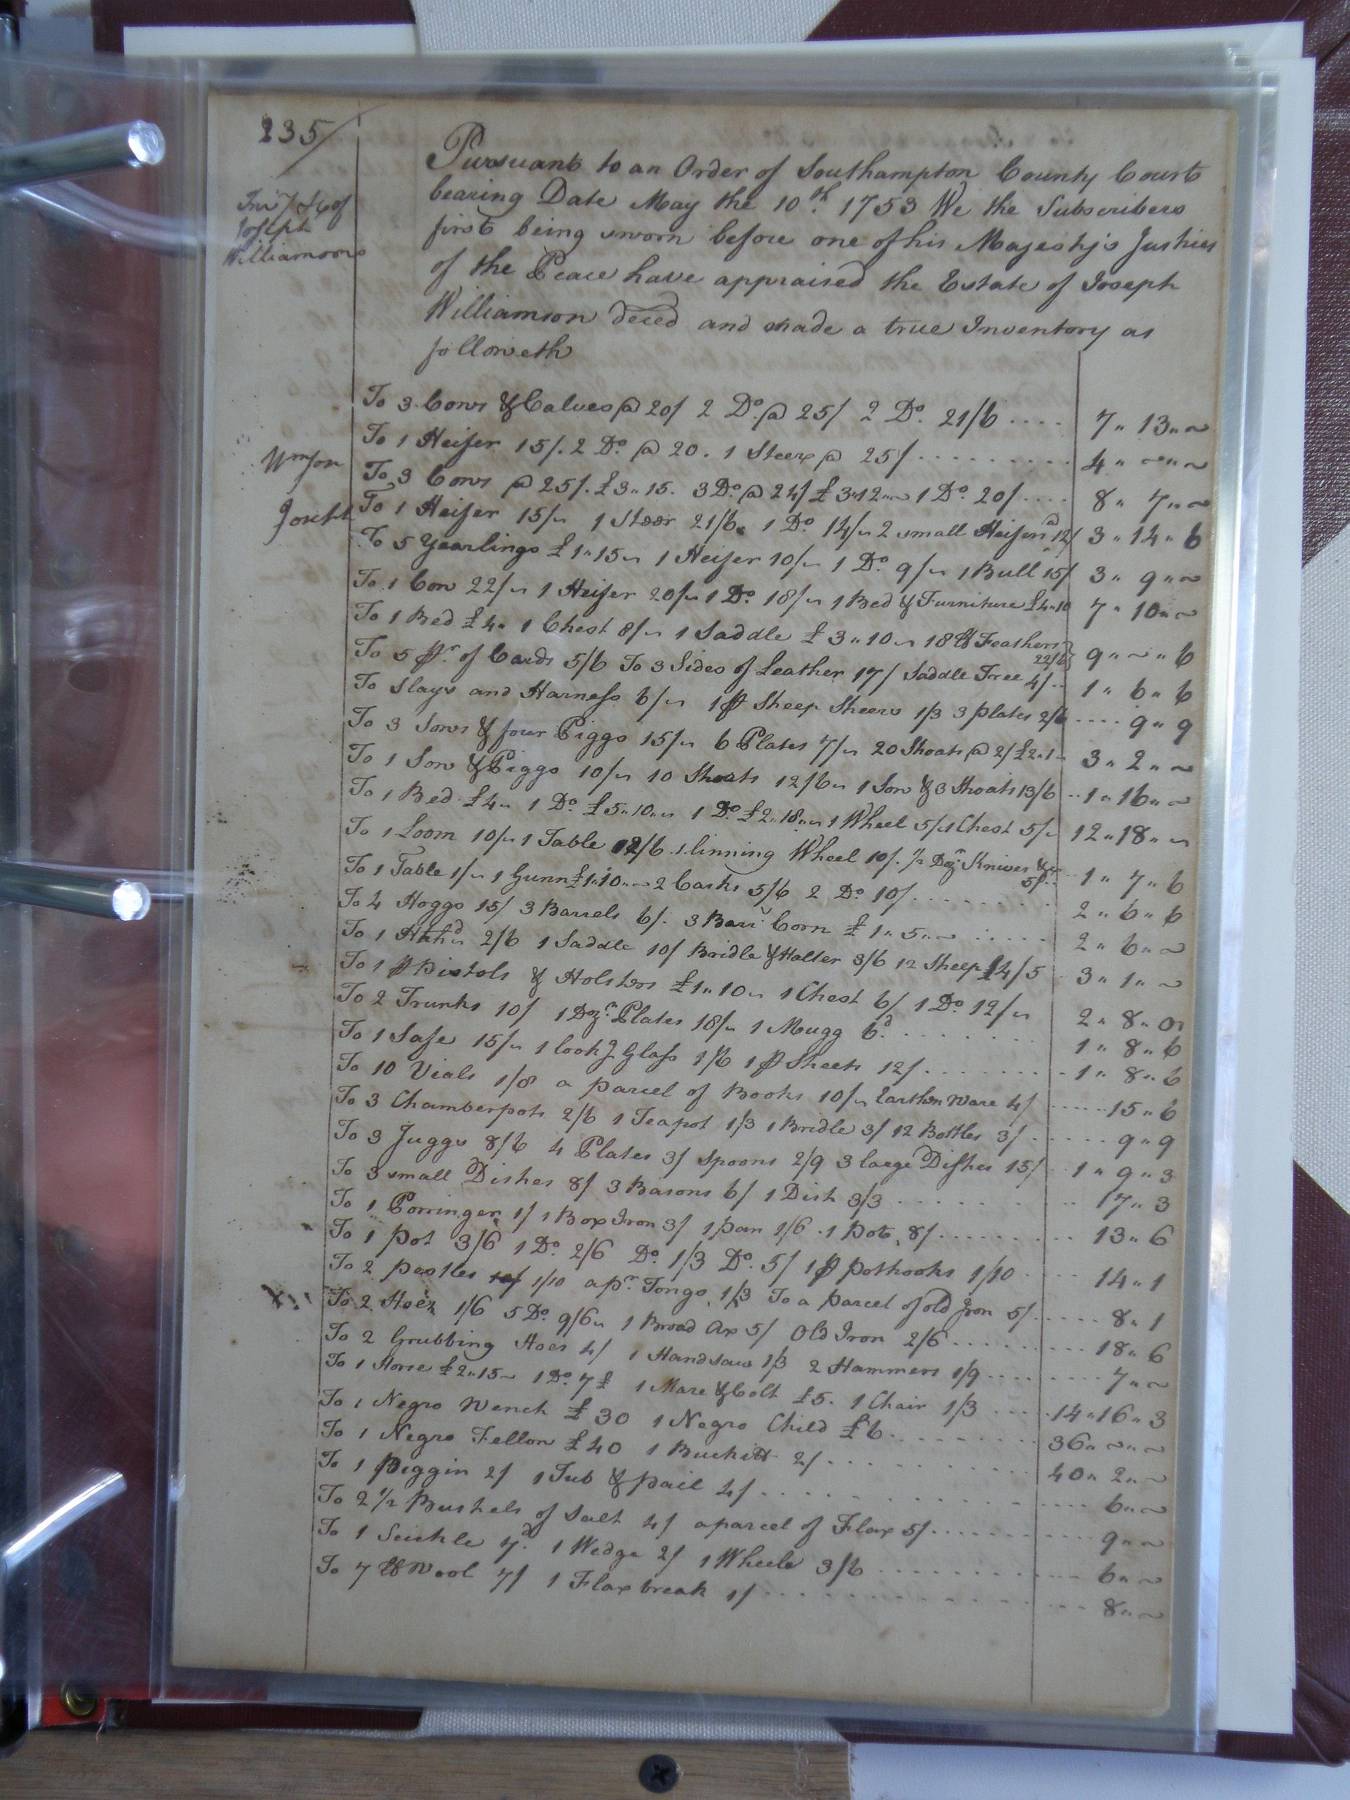 235/
Inv.y &c of
Joseph
Williamsons
Pursuant to an Order of Southampton County Court
bearing Date May the 10th. 1753 We the Subscribers
first being sworn before one of his Majesty's Justices
of the Peace have appraised the Estate of Joseph
Williamson deced and made a true Inventory as
followeth
To 3 Cows & Calves @ 20/ 2 Do. @ 25/ 2 Do. 21/6 .... 7 " 13 " ~
To 1 Heifer 15/. 2 Do @ 20. 1 Steer @ 25/ ......... 4 " ~ " ~
Wmson
To 3 Cows @ 25/. £3 " 15. 3 Do. @ 24/ £3 " 12 " ~ 1 Do. 20/ .... 8 " 7 " ~
Joseph
To 1 Heifer 15/~ 1 Steer 21/6. 1 Do 14/~ 2 small Heifers 12/ 3 " 14 " 6
To 5 Yearlings £1 " 15 ~ 1 Heifer 10/~ 1 Do. 9/~ 1 Bull 15/ 3 " 9 " ~
To 1 Cow 22/~ 1 Heifer 20/~ 1 Do. 18/~ 1 Bed & Furniture £4 " 10 7 " 10 " ~
To 1 Bed £4 " 1 Chest 8/~ 1 Saddle £3 " 10 ~ 18 lb Feathers 22/6 9 " ~ " 6
To 5 pr. of Cards 5/6 To 3 Sides of Leather 17/ Saddle Tree 4/ .. 1 " 6 " 6
To Slays and Harness 6/~ 1 pr Sheep Sheers 1/3 3 plates 2/6 .... 9 " 9
To 3 Sows & four Piggs 15/~ 6 Plates 7/~ 20 Shoats @ 2/ £2 " ~ 3 " 2 " ~
To 1 Sow & Piggs 10/~ 10 Shoats 12/6 ~ 1 Sow & 3 Shoats 13/6 .. 1 " 16 " ~
To 1 Bed £4 ~ 1 Do. £5 " 10 " ~ 1 Do. £2 " 18 " ~ 1 Wheel 5/~ 1 Chest 5/~ 12 " 18 " ~
To 1 Loom 10/~ 1 Table 12/6 . 1 linning Wheel 10/. 1/2 Dozn Knives &c 5/ .. 1 " 7 " 6
To 1 Table 1/~ 1 Gunn £1 " 10 " ~ 2 Casks 5/6 2 Do 10/ ....... 2 " 6 " 6
To 4 Hoggs 15/ 3 Barrels 6/. 3 Barrs Corn £1 " 5 " ~ ..... 2 " 6 " ~
To 1 Hhhd 2/6 1 Saddle 10/ Bridle & Halter 3/6 12 Sheep £4/5 . 3 " 1 " ~
To 1 pr Pistols & Holsters £1 " 10 ~ 1 Chest 6/ 1 Do. 12/~ 2 " 8 " 0
To 2 Trunks 10/ 1 Dozn. Plates 18/~ 1 Mugg 6d. ........ 1 " 8 " 6
To 1 Safe 15/~ 1 lookg Glass 1/6 1 pr Sheets 12/ ........ 1 " 8 " 6
To 10 Vials 1/8 a parcel of Books 10/~ Earthen Ware 4/ ..... 15 " 6
To 3 Chamberpots 2/6 1 Teapot 1/3 1 Bridle 3/ 12 Bottles 3/ ..... 9 " 9
To 3 Juggs 8/6 4 Plates 3/ Spoons 2/9 3 large Dishes 15/ 1 " 9 " 3
To 3 small Dishes 8/ 3 Basons 6/ 1 Dish 3/3 ......... 17 " 3
To 1 Porringer 1/ 1 Box Iron 3/ 1 pan 1/6 . 1 pot, 8/ ........ 13 " 6
To 1 pot 3/6 1 Do. 2/6 Do. 1/3 Do. 5/ 1 pr pothooks 1/10 .... 14 " 1
To 2 pestles 1/10 a pr. Tongs, 1/3 To a parcel of old Iron 5/ ..... 8 " 1
To 2 Hoes 1/6 5 Do. 9/6 ~ 1 Broad Ax 5/ Old Iron 2/6 .......... 18 " 6
To 2 Grubbing Hoes 4/ 1 Handsaw 1/3 2 Hammers 1/9 ........ 7 " ~
To 1 Horse £2 " 15 ~ 1 Do. 7£ 1 Mare & Colt £5. 1 Chair 1/3 .... 14 " 16 " 3
To 1 Negro Wench £30 1 Negro Child £6 ......... 36 " ~ " ~
To 1 Negro Fellow £40 1 Buckitt 2/ ............ 40 " 2 " ~
To 1 Piggin 2/ 1 Tub & pail 4/ ............... 6 " ~
To 2 1/2 Bushels of Salt 4/ a parcel of Flax 5/ ............ 9 " ~
To 1 Seickle 7d. 1 Wedge 2/ 1 Wheele 3/6 ............. 6 " ~
To 7 lb Wool 7/ 1 Flax break 1/ ................. 8 " ~